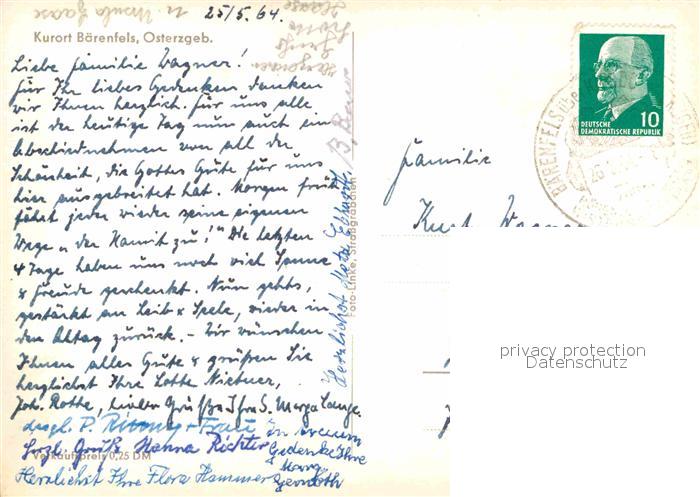 25/5. 64.
u. Ursula Haase
Kurort Bärenfels, Osterzgeb.
Liebe Familie Wagner!
Für Ihr liebes Gedenken danken
wir Ihnen herzlich. Für uns alle
ist der heutige Tag nun auch ein
Abschiednehmen von all der
Schönheit, die Gottes Güte für uns
hier ausgebreitet hat. Morgen früh
fährt jeder wieder seine eigenen
Wege „der Heimat zu!" Die letzten
4 Tage haben uns noch viel Sonne
& Freude geschenkt. Nun gehts,
gestärkt an Leib & Seele, wieder in
den Alltag zurück. – Wir wünschen
Ihnen alles Gute & grüßen Sie
herzlichst Ihre Lotte
Joh. Rothe, lieber Grüße Ihre S. Marga Lange.
desgl. P. + Frau
Herzl. Grüße Hanna Richter
Herzlichst Ihre Flora Hammer
In treuem
Gedenken Ihre
Marg.
Verkaufspreis 0,25 DM
Herzlichst Meta
Foto-Linke, Straßgräbchen
Familie
Kurt Wagner
10
DEUTSCHE
DEMOKRATISCHE REPUBLIK
BÄRENFELS
privacy protection
Datenschutz